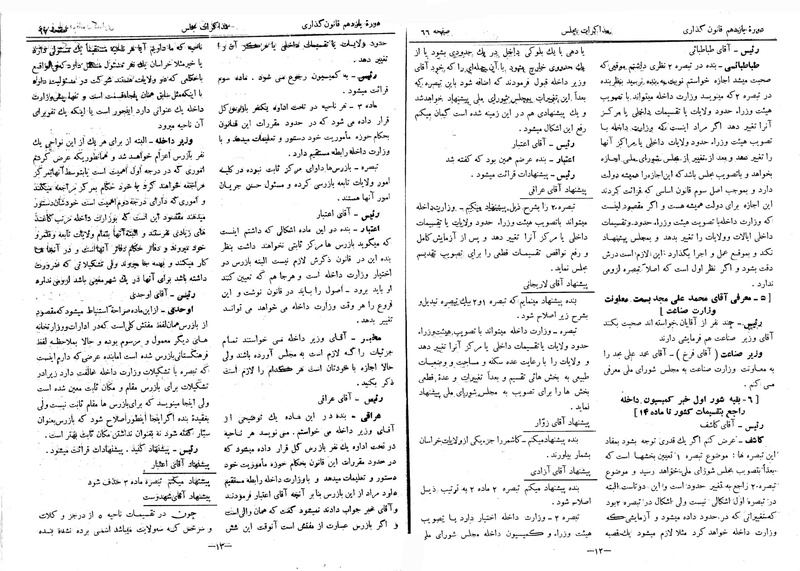 دورهٔ یازدهم قانون گذاری
مذاکرات مجلس
صفحه ۶۶
رئیس - آقای طباطبائی
طباطبائی - بنده در تبصره ۲ نظری داشتم موقعی که
صحبت میشد اجازه خواستم نوبت به بنده نرسید بنظر بنده
در تبصره ۲ که مینویسد وزارت داخله میتواند با تصویب
هیئت وزراء حدود ولایات یا تقسیمات داخلی یا مرکز
آنرا تغییر دهد اگر مراد اینست که وزارت داخله با
تصویب هیئت وزراء حدود ولایات یا مراکز آنها
را تغییر دهد و بعد از تغییر از مجلس شورای ملی اجازه
بخواهد و یا تصویب مجلس باشد که این اجازه را همیشه دولت
دارد و بموجب اصل سوم قانون اساسی که قرائت کردند
این اجازه برای دولت همیشه هست و اگر مقصود اینست
که وزارت داخله با تصویب هیئت وزراء حدود و تقسیمات
داخلی ایالات و ولایات را تغییر بدهد و بمجلس پیشنهاد
نکند و بموقع عمل و اجرا بگذارد؛ این لازم است درش
دقت بشود و اگر نظر اول است که اصلاً تبصره لزومی
ندارد.
[۵ - معرفی آقای محمد علی مجد بسمت معاونت
وزارت صناعت]
رئیس - چند نفر از آقایان خواسته اند صحبت بکنند
وزیر صناعت هم فرمایشی دارند
وزیر صناعت (آقای فرخ) - آقای محمد علی مجد را
به معاونت وزارت صناعت به مجلس شورای ملی معرفی
می کنم.
[۶ - بقیه شور اول خبر کمیسیون داخله
راجع بتقسیمات کشور تا ماده ۱۴]
رئیس - آقای کاشف
کاشف - عرض کنم اگر قدری توجه بشود بمفاد
این تبصره ها : موضوع تبصره ۱ تعیین بخشها است که
بعداً بتصویب مجلس شورای ملی خواهد رسید و موضوع
تبصره ۲ راجع به تغییر حدود است و این دوتاست البته
در تبصره اول اشکالی نیست ولی اشکال در تبصره ۲ بود
که تغییراتی که در حدود داده میشود و آزمایشی که
وزارت داخله خواهد کرد مثلا لازم میشود که یک قصبه
یا دهی یا یک بلوکی داخل در یک حدودی بشود یا از
یک حدودی خارج بشود
وزیر داخله قبول فرمودند که اضافه شود باین تبصره که
بعداً این تغییرات بمجلس شورای ملی پیشنهاد خواهد شد
و یک پیشنهادی هم در این زمینه شده است گمان میکنم
رفع این اشکال میشود.
رئیس - آقای اعتبار
اعتبار - بنده عرضم همین بود که گفته شد
رئیس - پیشنهادات قرائت میشود.
پیشنهاد آقای عراقی
تبصره ۲ را بشرح ذیل پیشنهاد میکنم - وزارت داخله
میتواند با تصویب هیئت وزراء حدود ولایات یا تقسیمات
داخلی یا مرکز آنرا تغییر دهد و پس از آزمایش کامل
و رفع نواقص تقسیمات قطعی را برای تصویب تقدیم
مجلس نماید.
پیشنهاد آقای لاریجانی
بنده پیشنهاد مینمایم که تبصره ۱ و ۲ بیک تبصره تبدیل و
بشرح زیر اصلاح شود.
تبصره - وزارت داخله میتواند با تصویب هیئت وزراء
حدود ولایات یا تقسیمات داخلی یا مرکز آنرا تغییر دهد
و ولایات را با رعایت عده سکنه و مساحت و وضعیات
طبیعی به بخش هائی تقسیم و بعداً تغییرات و عدهٔ قطعی
بخش ها را برای تصویب به مجلس شورای ملی پیشنهاد
نماید.
پیشنهاد آقای زوّار
بنده پیشنهاد میکنم - کاشمر را جزء یکی از ولایات خراسان
بشمار بیاورند.
پیشنهاد آقای آزادی
بنده پیشنهاد میکنم تبصره ۲ ماده ۲ به ترتیب ذیل
اصلاح شود.
تبصره ۲ - وزارت داخله اختیار دارد با تصویب
هیئت وزراء و کمیسیون داخله مجلس شورای ملی
—۱۲—
دورهٔ یازدهم قانون گذاری
مذاکرات مجلس
حدود ولایات یا تقسیمات داخلی یا مرکز آن را
تغییر دهد.
رئیس - به کمیسیون رجوع می شود. ماده سوم
قرائت میشود.
ماده ۳ - هر ناحیه در تحت اداره یک نفر بازرس کل
قرار داده می شود که در حدود مقررات این قانون
بحکام حوزه مأموریت خود دستور و تعلیمات میدهد و با
وزارت داخله رابطه مستقیم دارد.
تبصره - بازرس‌ها دارای مرکز ثابت نبوده در کلیه
امور ولایات تابعه بازرسی کرده و مسئول حسن جریان
امور آنها هستند.
رئیس - آقای اعتبار
اعتبار - بنده در این ماده این اشکال که داشتم
که میگوید بازرس ها مرکز ثابتی نخواهند داشت بنظر
بنده این در قانون ذکرش لازم نیست البته بازرس در
اختیار وزارت داخله است و هرجا هم که تعیین کنند
باید برود. اصول را بباید در قانون نوشت و این
فروع را هر وقت وزارت داخله می خواهد می توانند
تغییر بدهد.
مخبر - آقای وزیر داخله نمی خواستند تمام
جزئیات را که لازم است به مجلس آورده باشد ولی
حالا اجازه با خودتان است هر کدام را لازم است
ذکر بکنید.
رئیس - آقای عراقی
عراقی - بنده در این ماده یک توضیحی از
آقای وزیر داخله می خواستم. می نویسد هر ناحیه
در تحت اداره یک نفر بازرس کل قرار داده میشود که
در حدود مقررات این قانون بحکام حوزه مأموریت خود
دستور و تعلیمات میدهد و با وزارت داخله رابطه مستقیم
دارد مراد از این بازرس بنا بر آنچه آقای اعتبار فرمودند
و آقای مخبر جواب دادند نمیشود گفت که همان والی است
و اگر بازرس عبارت از مفتش است آنوقت این شش
ناحیه که ما داریم آیا هر ناحیه مستقیماً یک مسئولی دارد
یا خیر مثلا خراسان یک نفر مسئول کل دارد
داخله یک عنوانی دارد اینجور است یا اینکه یک نفر برای
آن ناحیه میرود
وزیر داخله - البته از برای هر یک از این نواحی یک
نفر بازرس اعزام خواهند شد و همانطوریکه عرض کردم
اموری که در درجه اول اهمیت است
و آموری که دارای درجه دوم اهمیت است خودشان دستور
میدهند مقصود این است که بوزارت داخله مرتب کاغذ
های زیادی نفرستند و البته آنها بتمام ولایات تابعه
خود میروند
کار میکنند و تهیه جا میروند ولی تشکیلاتی که ضرورت
داشته باشد برای آنها در یک شهر معینی باشد لزومی ندارد
رئیس - آقای اوحدی
اوحدی - از این ماده صراحتاً استنباط میشود که مقصود
از بازرس همان لفظ مفتش کلی است که در ادارات و وزارتخانه
های دیگر معمول و مرسوم بوده و حالا بملاحظه لفظ
فرهنگستانی بازرس شده است اما بنده عرضی که دارم اینست
که تبصره با تشکیلات وزارت داخله مخالفت دارد زیرا در
تشکیلات برای بازرس مقام و مکان ثابت معین شده است
ولی اینجا مینویسد که برای بازرس ها مقام ثابت نیست ولی
بعقیدهٔ بنده اگر اینجا اینطور اصلاح شود که بازرس بعنوان
سیّار گفته شود نه بعنوان نداشتن مکان ثابت بهتر است.
رئیس - پیشنهاد کنید. پیشنهادات قرائت میشود.
پیشنهاد آقای اعتبار
پیشنهاد میکنم تبصره ماده ۳ حذف شود
پیشنهاد آقای شهدوست
چون در تقسیمات ناحیه ۵ از درجز و کلات
—۱۳—